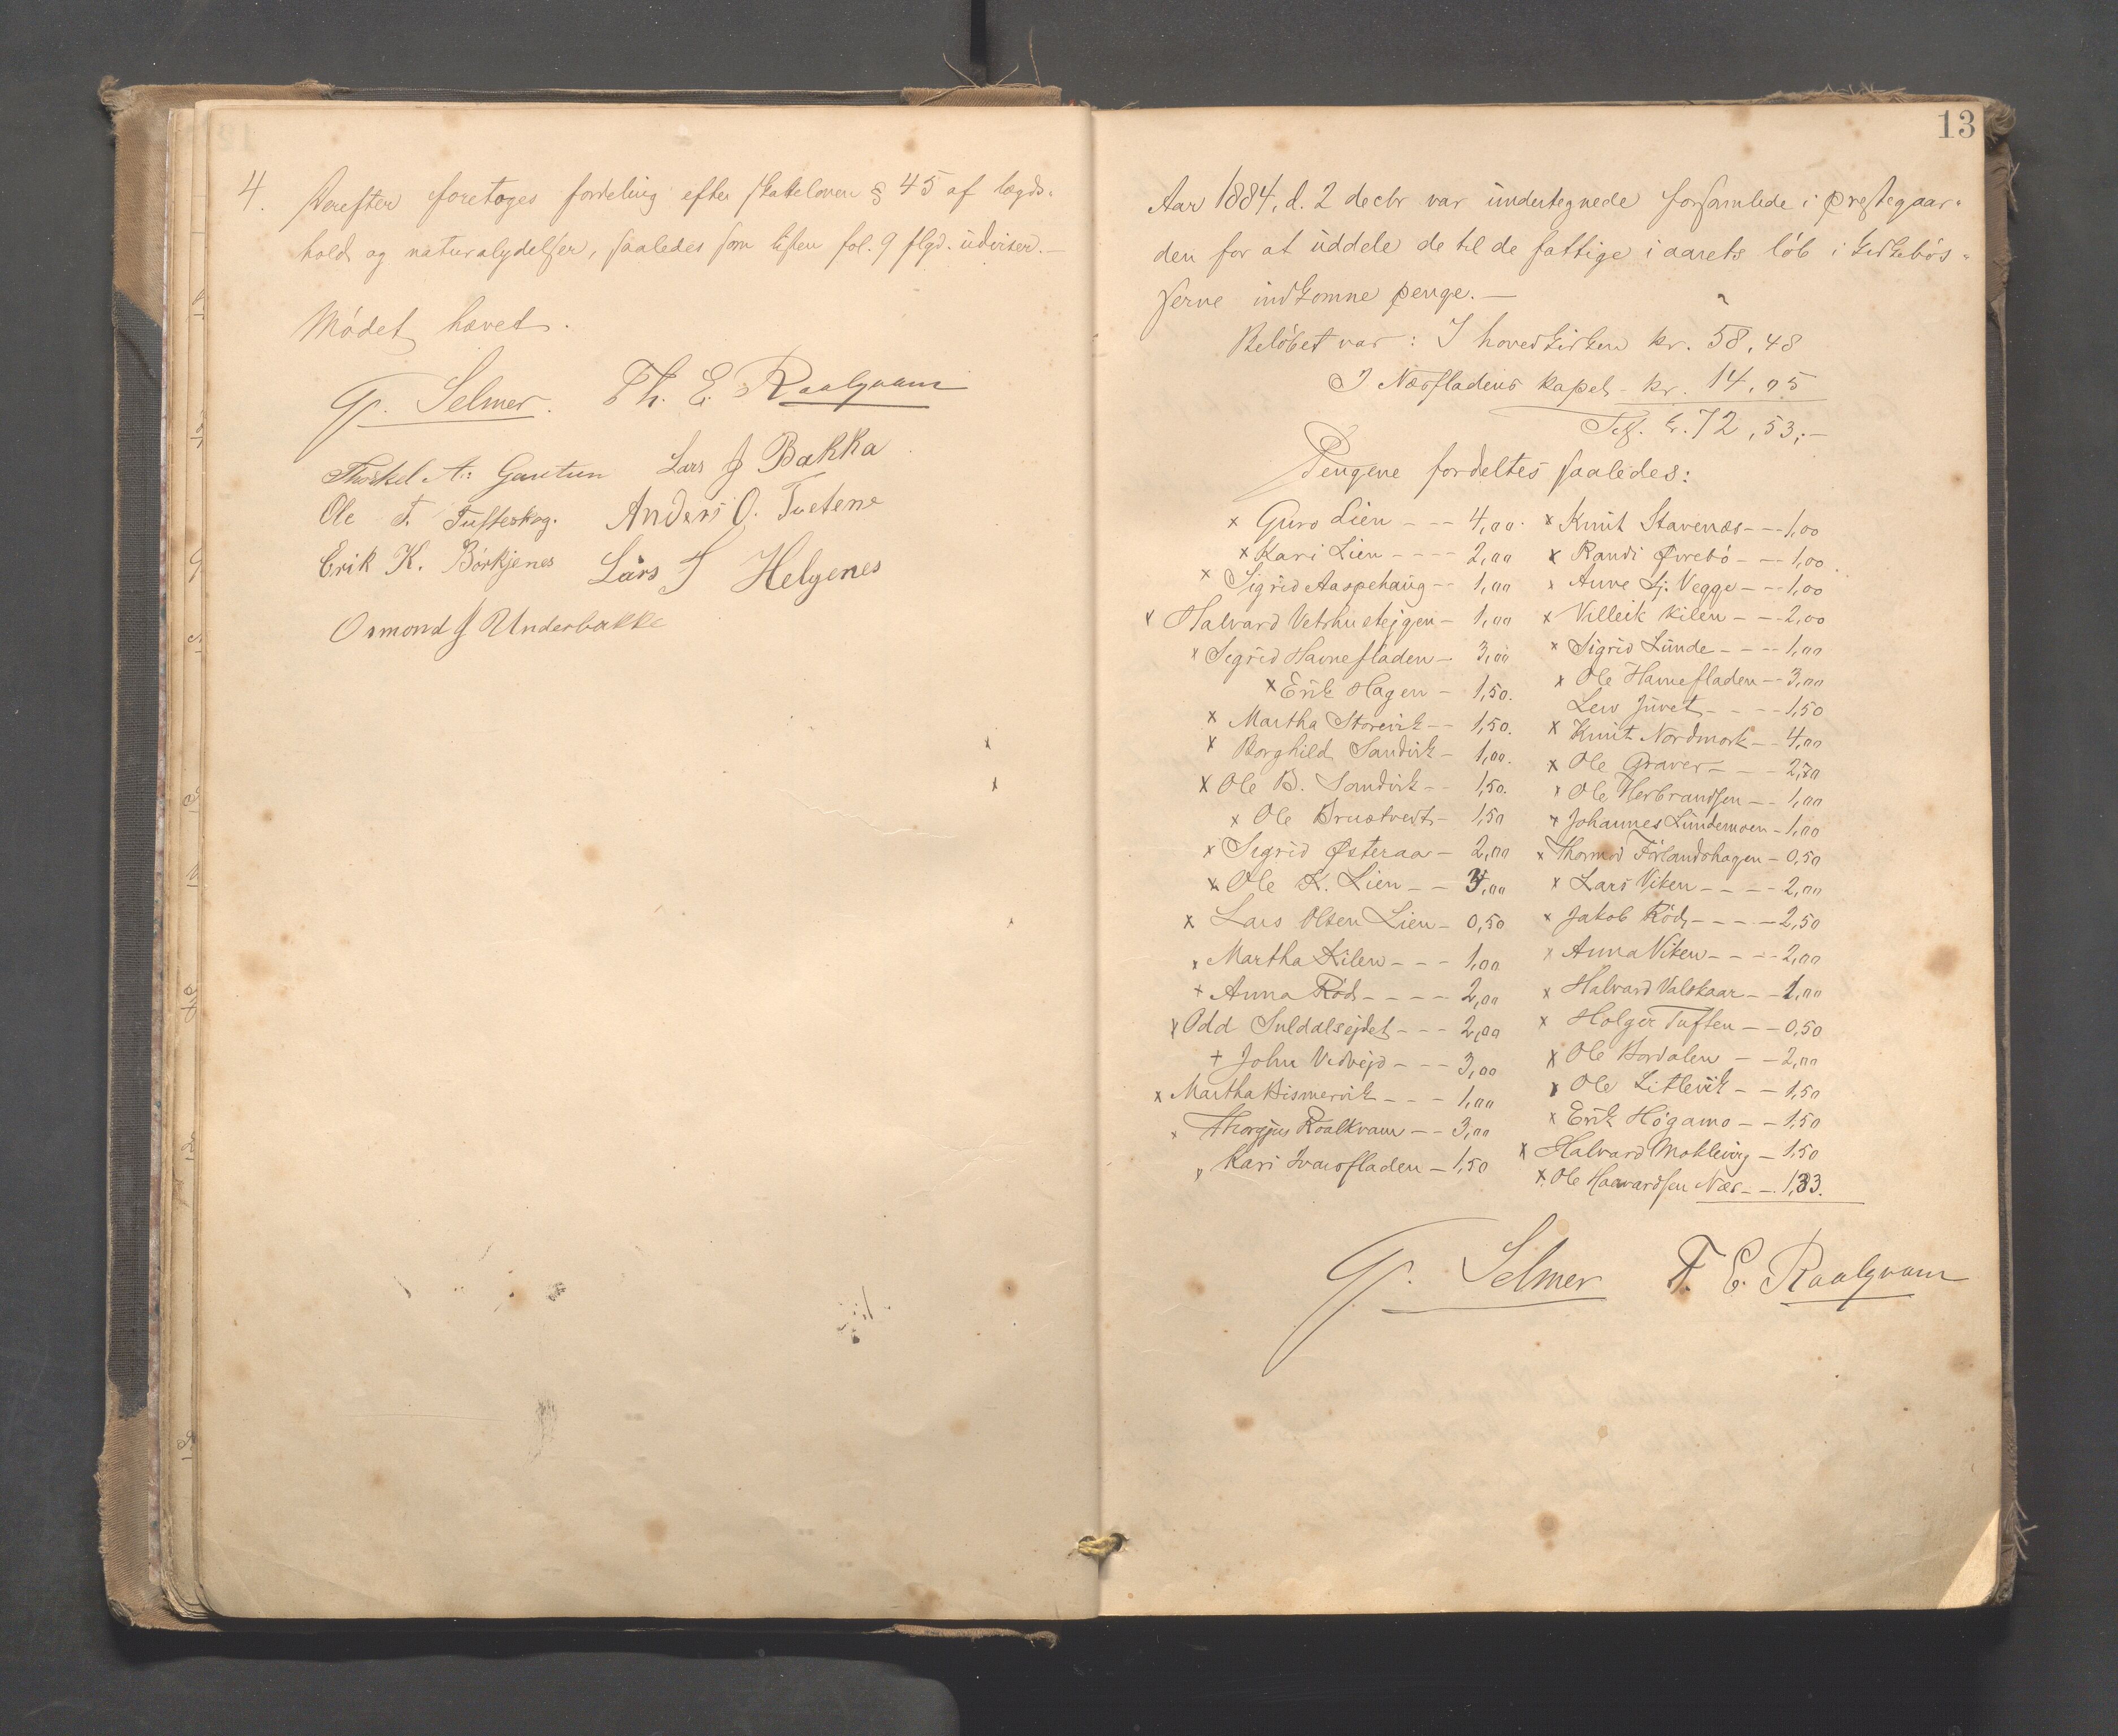 4. Derefter foretoges fordeling efter skatteloven § 45 af lægds-
hold og naturalydelser, saaledes som listen fol. 9 flgd. udviser.—
Mødet hævet.
G. Selmer. Th. E. Raalqvam
Thorkel A: Gautun Lars J Bakka
Ole T. Tufteskog. Anders O. Tvetene
Erik K. Børkjenes Lars S Helgenes
Osmond J Underbakke
13
Aar 1884, d. 2 decbr var undertegnede forsamlede i prestegaar-
den for at uddele de til de fattige i aarets løb i kirkebøs-
serne indkomne penge.—
Beløbet var: I hovedkirken kr. 58,48
I Næsfladens kapel – kr. 14,05
Tils. kr. 72,53,–
Pengene fordeltes saaledes:
x Guro Lien – – – 4,00. x Knut Stavenæs – – – 1,00
x Kari Lien – – – – 2,00 x Randi Øvrebø – – – 1,00.
x Sigrid Aaspehaug – – 1,00 x Anne Sj. Vegge – – – 1,00
x Halvard Vetrhusteigen – 1,00 x Villeik Kilen – – – 2,00
x Sigrid Havnefladen – 3,00 x Sigrid Lunde – – – – 1,00
x Erik Hagen – 1,50. x Ole Havnefladen – – 3,00
x Martha Storevik – – 1,50. Lew Juvet – – – – 1,50
x Borghild Sandvik – 1,00. x Knut Nordmork – – 4,00
x Ole B. Sandvik – – 1,50. x Ole Graver – – – 2,70
x Ole Bruatvedt – 1,50 x Ole Herbrandsen – – 1,00
x Sigrid Østeraa – 2,00 x Johannes Lundemoen – 1,00
x Ole K. Lien – – 3,00 x Thormod Førlandshagen – 0,50
x Lars Olsen Lien – 0,50 x Lars Viken – – – – 2,00
x Martha Kilen – – – 1,00 x Jakob Rød – – – – 2,50
x Anna Rød – – – – 2,00 x Anna Viken – – – – 2,00
x Odd Suldalseidet – – – 2,00 x Halvard Valskaar – – 1,00
+ John Vedveid – – – 3,00 x Holger Tuften – – 0,50
x Martha Bismervik – – – 1,00 x Ole Hordalen – – 2,00
x Thorgius Roalkvam – – 3,00 x Ole Litlevik – – 1,50
x Kari Ivarsfladen – 1,50 x Erik Høgamo – – 1,50
x Halvard Mokleiv – 1,50
x Ole Haavardsen Næs – – 1,33.
G. Selmer T. E. Raalqvam